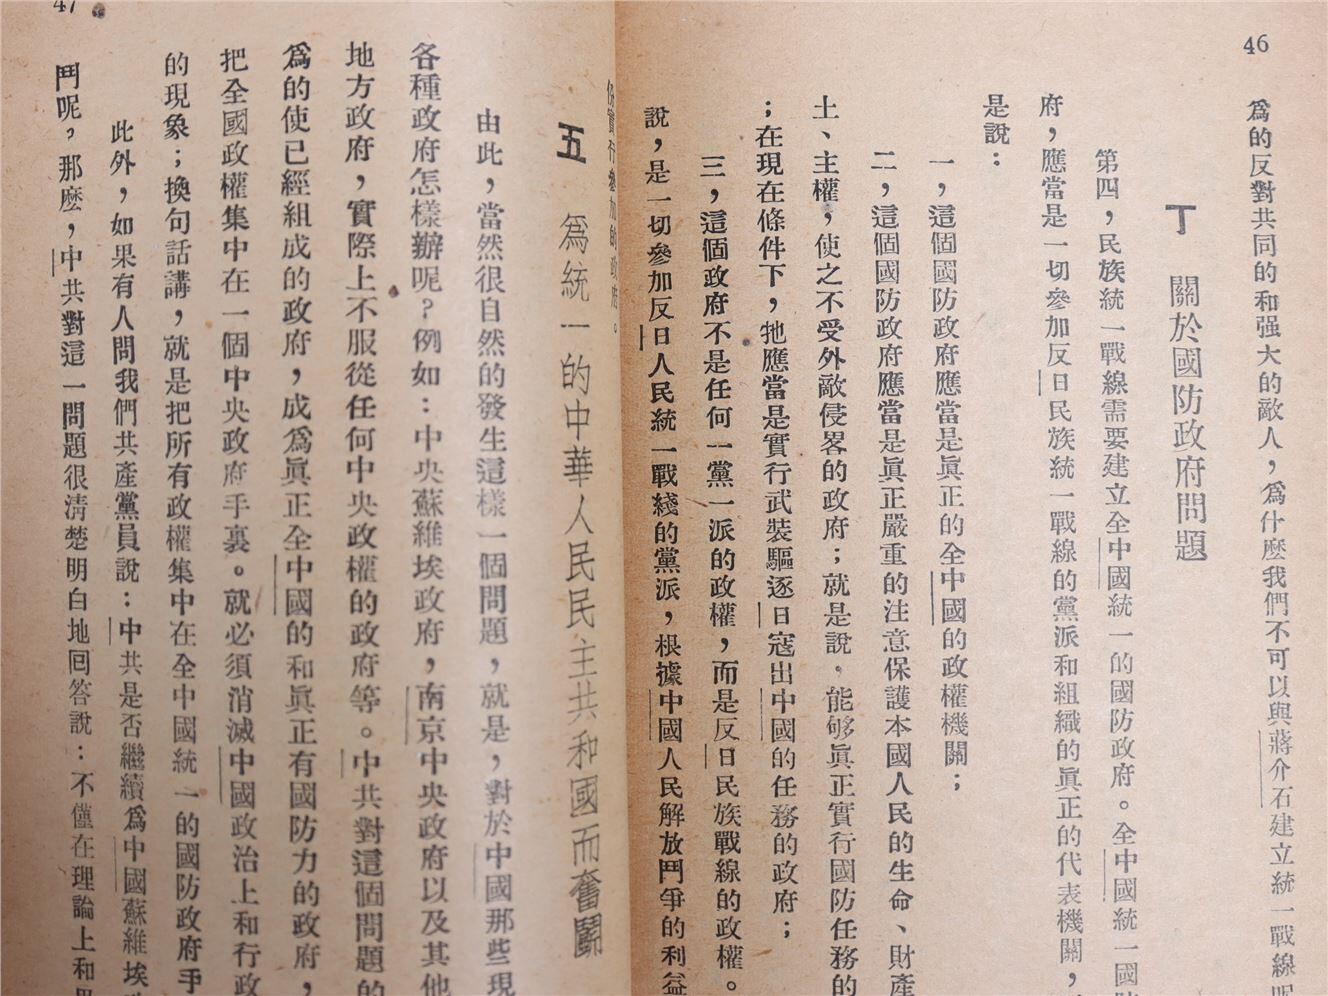 46
爲的反對共同的和强大的敵人，爲什麽我們不可以與蔣介石建立統一戰線呢
丁　關於國防政府問題
第四，民族統一戰線需要建立全中國統一的國防政府。全中國統一國防
府，應當是一切參加反日民族統一戰線的黨派和組織的眞正的代表機關，
是說：
一，這個國防政府應當是眞正的全中國的政權機關；
二，這個國防政府應當是眞正嚴重的注意保護本國人民的生命、財產
土、主權，使之不受外敵侵畧的政府；就是說。能够眞正實行國防任務的
；在現在條件下，牠應當是實行武裝驅逐日寇出中國的任務的政府；
三，這個政府不是任何一黨一派的政權，而是反日民族戰線的政權。
說，是一切參加反日人民統一戰綫的黨派，根據中國人民解放鬥爭的利益
份實行參加的政府。
47
五　爲統一的中華人民民主共和國而奮鬭
由此，當然很自然的發生這樣一個問題，就是，對於中國那些現
各種政府怎樣辦呢？例如：中央蘇維埃政府，南京中央政府以及其他
地方政府，實際上不服從任何中央政權的政府等。中共對這個問題的
爲的使已經組成的政府，成爲眞正全中國的和眞正有國防力的政府，
把全國政權集中在一個中央政府手裏。就必須消滅中國政治上和行政
的現象；換句話講，就是把所有政權集中在全中國統一的國防政府手
此外，如果有人問我們共產黨員說：中共是否繼續爲中國蘇維埃
鬥呢，那麽，中共對這一問題很清楚明白地囘答說：不僅在理論上和